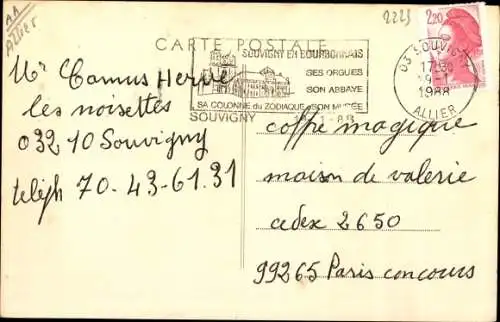 AA
Allier
2223
CARTE POSTALE
SOUVIGNY EN BOURBONNAIS
SES ORGUES
SON ABBAYE
SA COLONNE du ZODIAQUE SON MUSÉE
SOUVIGNY
2,20
03 SOUVIGNY
1988
ALLIER
Mr Camus Hervé
les noisettes
03210 Souvigny
téléph 70.43.61.31
coffre magique
maison de valerie
cedex 2650
99265 Paris concours